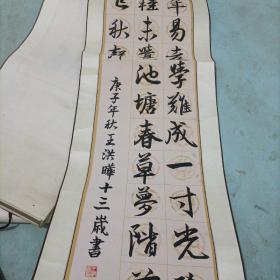 年易老學難成一寸光
輕未覺池塘春草夢階前
已秋聲
庚子年秋王洪曄十三歲書